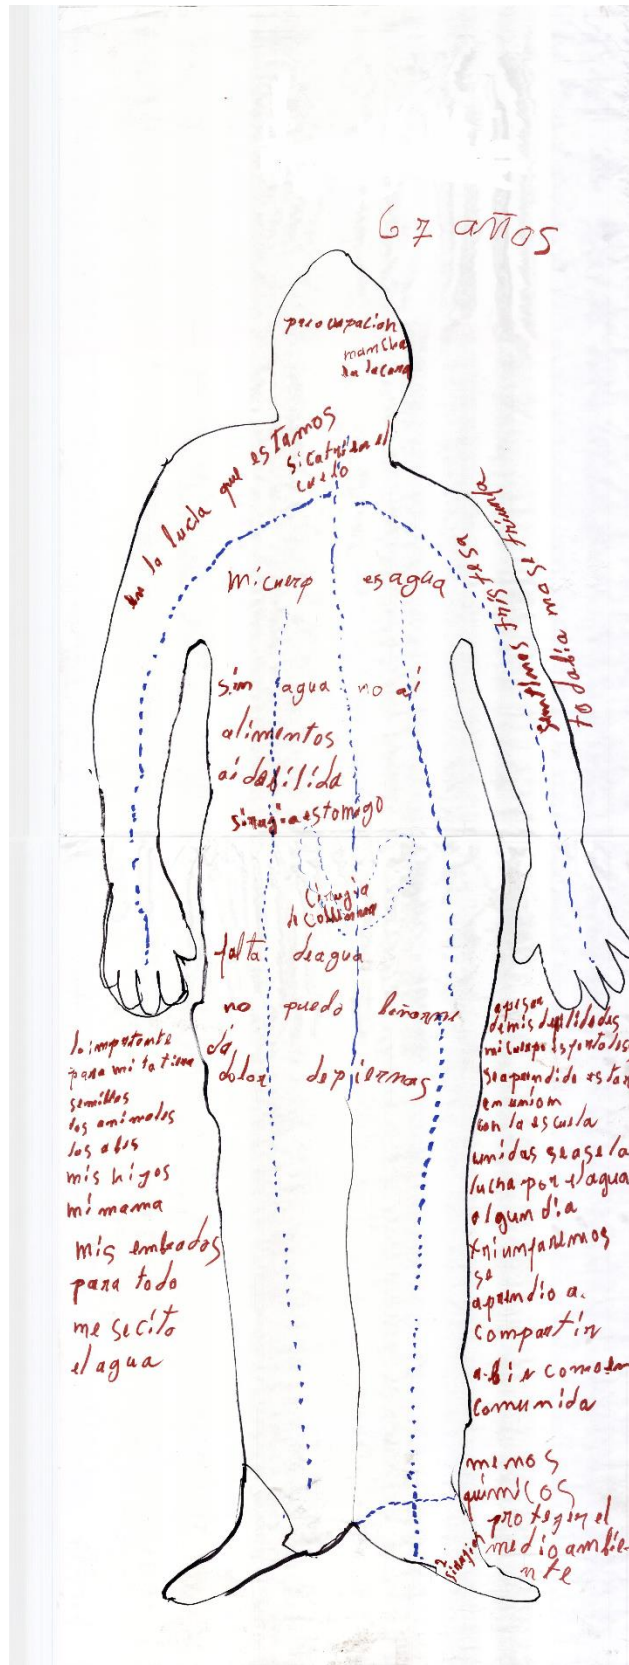 67 años
preocupación
mancha
en la cara
en la lucla que estamos
sicatris en el
cuello
mi cuerp es agua
sentimos tristesa
todabia mo se triunfa
sin agua no ai
alimentos
ai debilida
sirugia estomigo
Cirugia
de columna
falta de agua
no puedo bañarme
da
dolor de piernas
lo importante
para mi la tierra
semillas
los animales
las abes
mis hijos
mi mama
mis embrados
para todo
me secito
el agua
apesar
de mis deplidades
mi cuerpo es fortales
se aprendido estar
en union
con la escuela
unidas se ase la
lucha por el agua
algun dia
triunfaremos
se
aprendio a
compartir
a bir como en
comunida
menos
químicos
protegin el
medio ambie
nte
2
sirugias